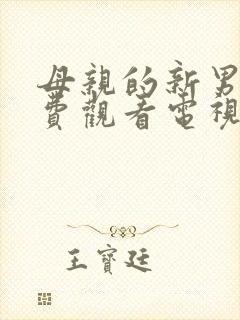 母親的新男
費觀看電視
王寶廷